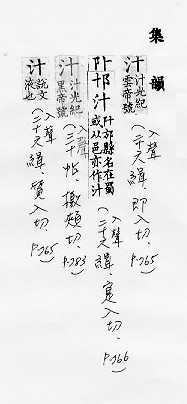 集韻
汁 汁光紀雲帝號
入聲
(二十六緝、即入切、P.765)
𨸐邡汁 汁邡縣名在蜀或从邑亦作汁
入聲
(二十六緝、寔入切、P.766)
汁 汁光紀黑帝號
入聲
(三十帖、檄頰切、P.783)
汁 說文液也
入聲
(二十六緝、質入切、P.765)